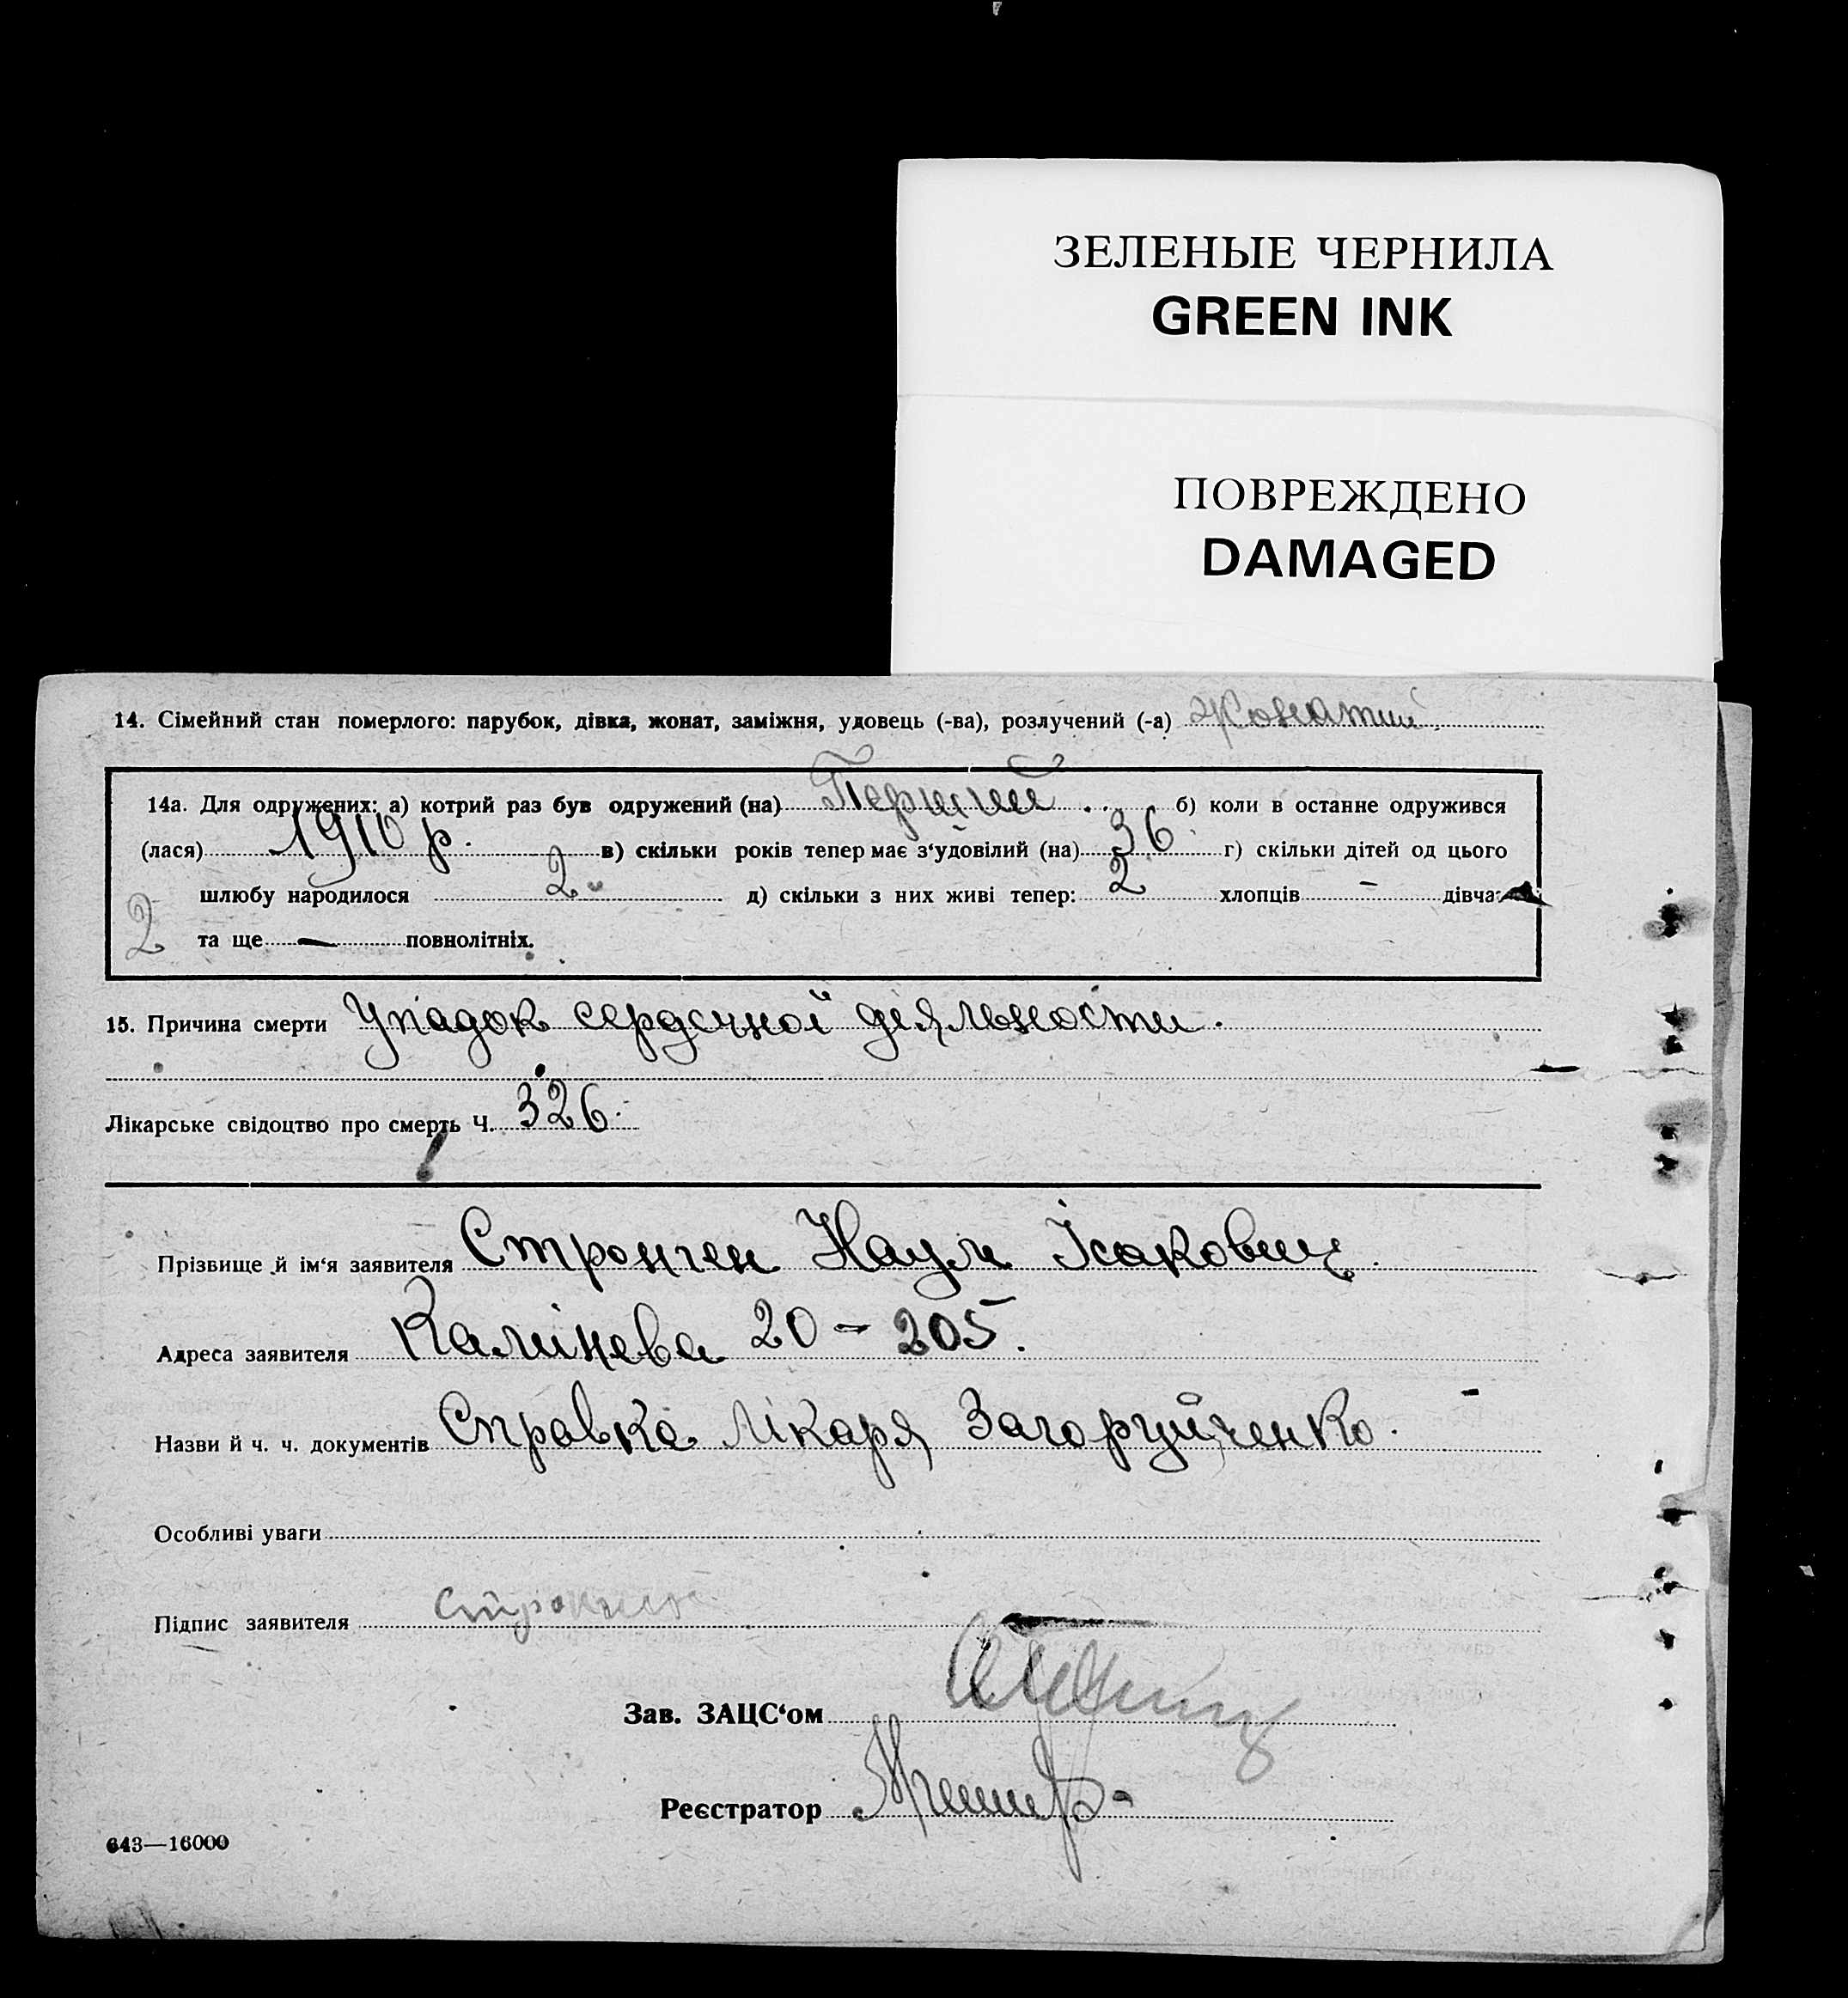 ЗЕЛЕНЫЕ ЧЕРНИЛА
GREEN INK
ПОВРЕЖДЕНО
DAMAGED
14. Сімейний стан померлого: парубок, дівка, жонат, заміжня, удовець (-ва), розлучений (-а) Жонатий
14а. Для одружених: а) котрий раз був одружений (на) Перший б) коли в останне одружився
(лася) 1910 р. в) скільки років тепер має з‘удовілий (на) 36 г) скільки дітей од цього
шлюбу народилося 2 д) скільки з них живі тепер: 2 хлопців – дівча
2 та ще — повнолітніх.
15. Причина смерти Упадок сердечної діяльности.
Лікарське свідоцтво про смерть Ч. 326.
Прізвище й ім‘я заявителя Стронген Наум Ісакович.
Адреса заявителя Калінева 20 – 205.
Назви й ч. ч. документів Справка лікаря Загоруйченко.
Особливі уваги
Підпис заявителя
Зав. ЗАЦС‘ом
Реєстратор
643—16000